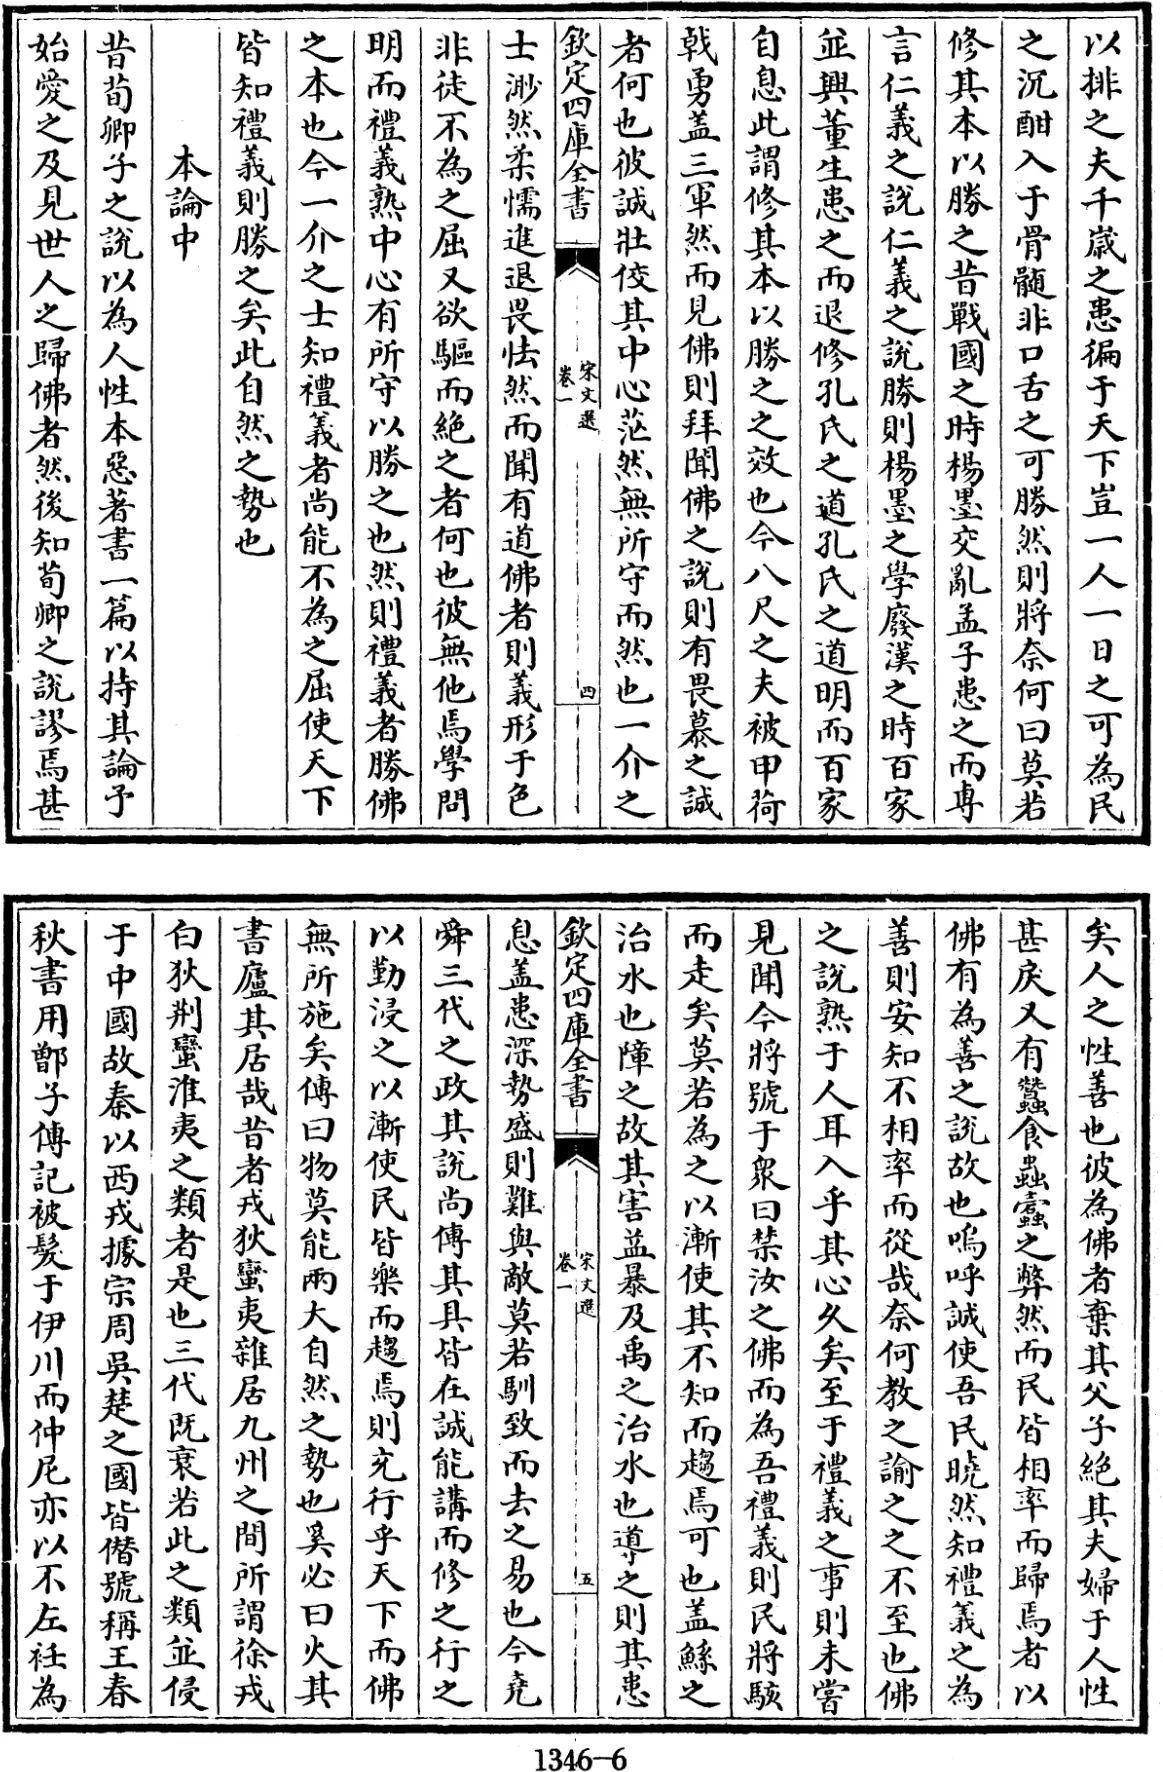 以排之夫千歳之患徧于天下豈一人一日之可為民
之沉酣入于骨髓非口舌之可勝然則將奈何曰莫若
修其本以勝之昔戰國之時楊墨交亂孟子患之而専
言仁義之説仁義之説勝則楊墨之學廢漢之時百家
並興董生患之而退修孔氏之道孔氏之道明而百家
自息此謂修其本以勝之之效也今八尺之夫被甲荷
戟勇盖三軍然而見佛則拜聞佛之説則有畏慕之誠
者何也彼誠壯佼其中心茫然無所守而然也一介之
欽定四庫全書
宋文選
卷一
四
士渺然柔懦進退畏怯然而聞有道佛者則義形于色
非徒不為之屈又欲驅而絶之者何也彼無他焉學問
明而禮義熟中心有所守以勝之也然則禮義者勝佛
之本也今一介之士知禮義者尚能不為之屈使天下
皆知禮義則勝之矣此自然之勢也
本論中
昔荀卿子之説以為人性本惡著書一篇以持其論予
始愛之及見世人之歸佛者然後知荀卿之説謬焉甚
矣人之性善也彼為佛者棄其父子絶其夫婦于人性
甚戾又有蠶食蟲蠹之弊然而民皆相率而歸焉者以
佛有為善之説故也嗚呼誠使吾民曉然知禮義之為
善則安知不相率而從哉奈何教之諭之之不至也佛
之説熟于人耳入乎其心久矣至于禮義之事則未嘗
見聞今將號于衆曰禁汝之佛而為吾禮義則民將駭
而走矣莫若為之以漸使其不知而趨焉可也盖鯀之
治水也障之故其害益暴及禹之治水也導之則其患
欽定四庫全書
宋文選
卷一
五
息盖患深勢盛則難與敵莫若馴致而去之易也今堯
舜三代之政其説尚傳其具皆在誠能講而修之行之
以勤浸之以漸使民皆樂而趨焉則充行乎天下而佛
無所施矣傳曰物莫能兩大自然之勢也奚必曰火其
書廬其居哉昔者戎狄蠻夷雜居九州之間所謂徐戎
白狄荆蠻淮夷之類者是也三代既衰若此之類並侵
于中國故秦以西戎據宗周吳楚之國皆僭號稱王春
秋書用鄫子傳記被髮于伊川而仲尼亦以不左衽為
1346-6